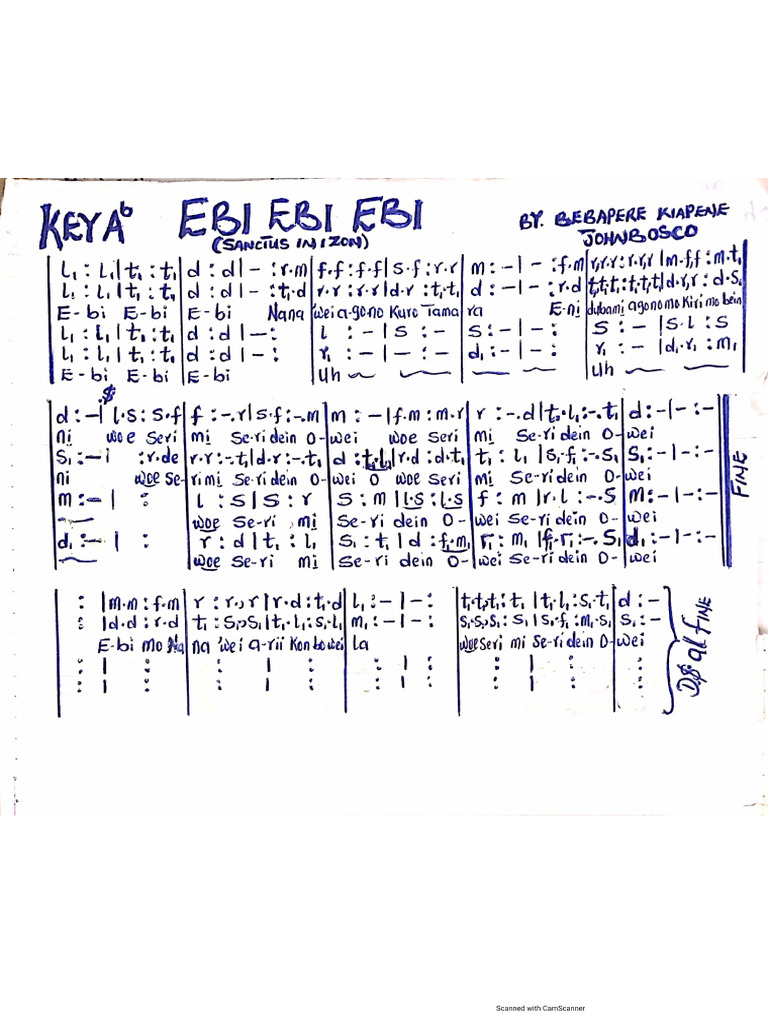 KEY Ab EBI EBI EBI BY. BEBAPERE KIAPENE
(SANCTUS IN IZON) JOHNBOSCO
l₁ : l₁ | t₁ : t₁ | d : d | – : r.m | f.f : f.f | s.f : r.r | m : – | – : f.m | r,r.r : r.r,r | m.f,f : m.t₁
l₁ : l₁ | t₁ : t₁ | d : d | – : t₁.d | r.r : r.r | d.r : t₁.t₁ | d : – | – : r.d | t₁,t₁.t₁ : t₁.t₁,t₁ | d.r,r : d.s₁
E-bi E-bi E-bi Nana 'wei a-gono Kuro Tama ra E-ni dubami agonomo Kiri mo bein
l₁ : l₁ | t₁ : t₁ | d : d | – : l : – | s : – | s : – | – : s : – | s.l : s
l₁ : l₁ | t₁ : t₁ | d : d | – : r₁ : – | – : – | d₁ : – | – : r₁ : – | d₁.r₁ : m₁
E-bi E-bi E-bi Uh Uh
d : – | l.s : s.f | f : –.r | s.f : –.m | m : – | f.m : m.r | r : –.d | t₁.l₁ : –.t₁ | d : – | – : –
ni woe seri mi Se-ri dein O-wei woe seri mi Se-ri dein O-wei
s₁ : – | : r.de | r.r : –.t₁ | d.r : –.t₁ | d : t₁.l₁ | r.d : d.t₁ | t₁ : l₁ | s₁.f₁ : –.s₁ | s₁ : – | – : –
ni woe Se-ri mi Se-ri dein O-wei O woe seri mi Se-ri dein O-wei
m : – | : l : s | s : r | s : m | l.s : l.s | f : m | r.l : –.s | m : – | – : –
woe Se-ri mi Se-ri dein O-wei Se-ri dein O-wei
d₁ : – | : r : d | t₁ : l₁ | s₁ : t₁ | d : f₁.m₁ | r₁ : m₁ | f₁.r₁ : –.s₁ | d₁ : – | – : –
woe Se-ri mi Se-ri dein O-wei Se-ri dein O-wei
FINE
: | m.m : f.m | r : r.,r | r.d : t₁.d | l₁ : – | – : | t₁.t₁,t₁ : t₁ | t₁.l₁ : s₁.t₁ | d : –
: | d.d : r.d | t₁ : s₁.,s₁ | t₁.l₁ : s₁.l₁ | m₁ : – | – : | s₁.s₁,s₁ : s₁ | s₁.f₁ : m₁.s₁ | s₁ : –
E-bi mo Na na 'wei a-rii Kon bo wei la woe seri mi Se-ri dein O-wei
: | : | : | : | : | : | : | : | :
: | : | : | : | : | : | : | : | :
D.S. al FINE
Scanned with CamScanner